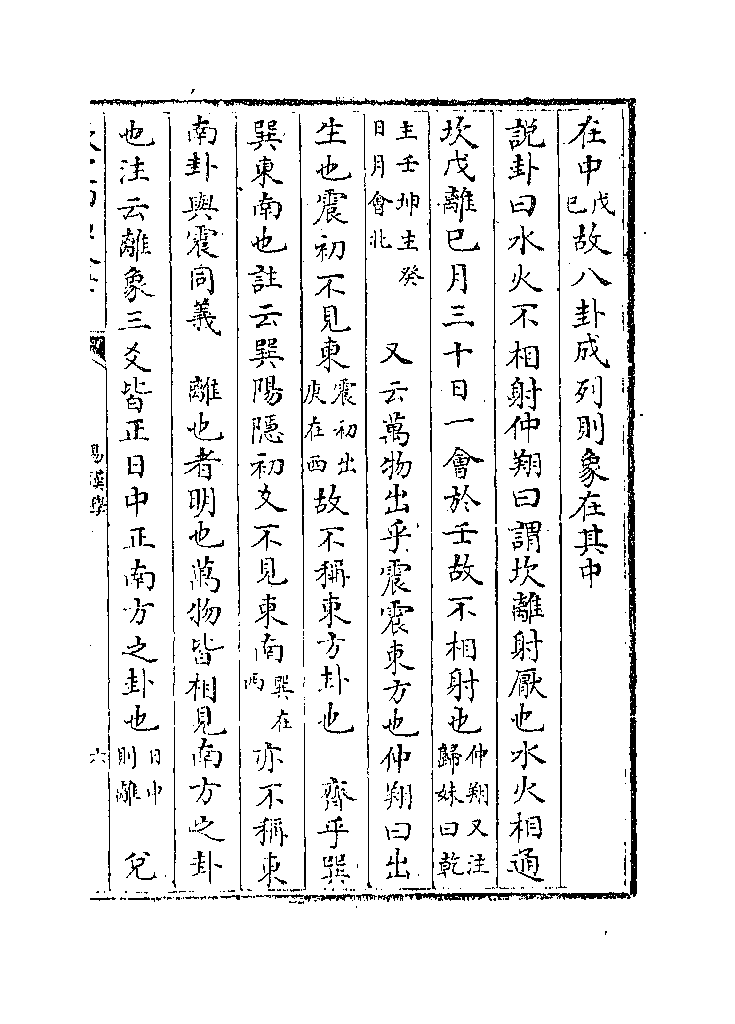 在中戊巳故八卦成列則象在其中
説卦曰水火不相射仲翔曰謂坎離射厭也水火相通
坎戊離巳月三十日一會於壬故不相射也仲翔又注歸妹曰乾
主壬坤主癸日月會北　又云萬物出乎震震東方也仲翔曰出
生也震初不見東震初出庚在西故不稱東方卦也　齊乎巽
巽東南也註云巽陽隱初爻不見東南巽在西亦不稱東
南卦與震同義　離也者明也萬物皆相見南方之卦
也注云離象三爻皆正日中正南方之卦也日中則離　兌
易漢學
六